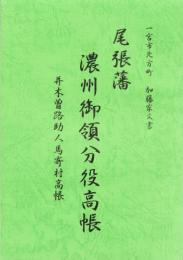 一宮市北方町　加藤家文書
尾張藩
濃州御領分役高帳
并木曽路助人馬寄村高帳